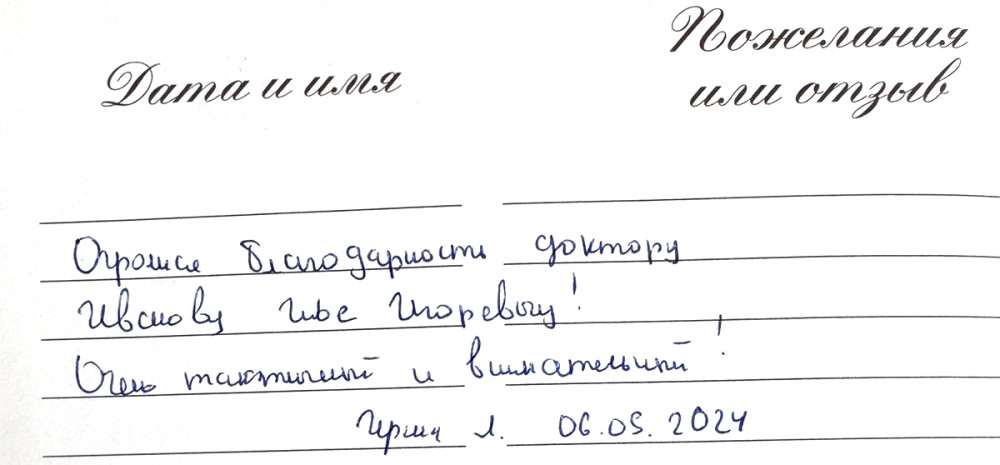 Дата и имя
Пожелания
или отзыв
Огромная благодарность доктору
Иванову Илье Игоревичу!
Очень тактичный и внимательный!
Ирина Л. 06.05.2024